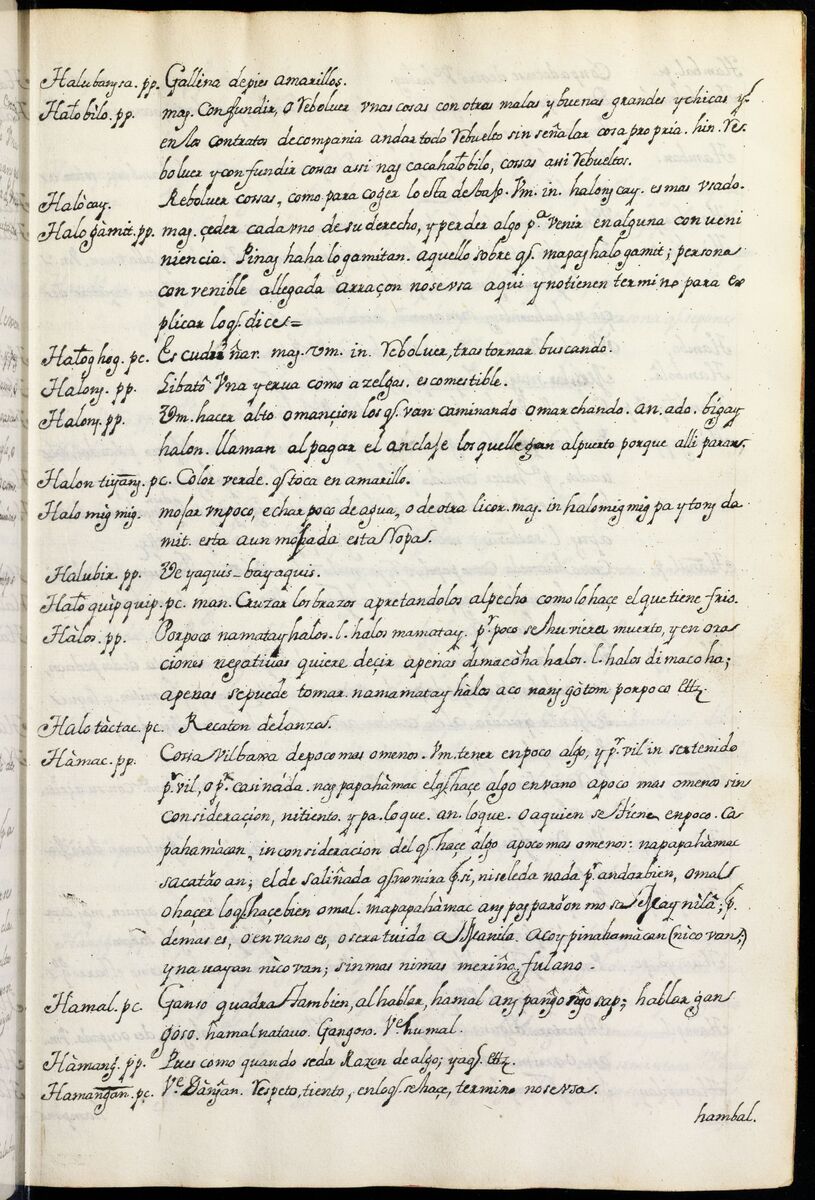 Halubaysa. pp. Gallina depies amarillos.
Halobilo. pp. maj. Confundir, O Rebolver vnas cosas con otras malas y buenas grandes y chicas y
en los contratos decompania andar todo Rebuelto sin señalar cosa propria. hin. Res-
bolver y confundir cosas assi naj cacahalobilo, cossas assi Rebueltos.
Halòcay. Rebolver cossas, como para coger lo esta debajo. Vm. in. halonj cay. es mas vsado.
Halogàmit. pp. maj. çeder cadavno de su derecho, y perder algo pª venir en alguna conveni
niencia. Pinaj hahalogamitan. aquello sobre q. mapaj halogamit; persona
convenible allegada arraçon nosevsa aqui y notienen termino para ex
plicar loq. dices=
Haloghog. pc. Escudriñar. maj. vm. in. Rebolver, trastornar buscando.
Halonj. pp. Libato Vna yerva como azelgas. es comestible.
Halonj. pp. Vm. hacer alto o mançion los q. van caminando o marchando. an. ado. bigay
halon. llaman al pagar el anclaje los quellegan alpuerto porque alli paran.
Halon tiyanj. pc. Color verde. q toca en amarillo.
Halo migmig. mojar vnpoco, echar poco de agua, o de otra licor. maj. in halomigmig pa y tonj da
mit. esta aun mojada esta Ropa.
Halubir. pp. Ve yaquis - bayaquis.
Halo quipquip. pc. man. Cruzar los brazos apretandolos alpecho como lo haçe el que tiene frio.
Hàlos. pp. Porpoco namatay halos. l. halos mamatay. pr poco se huviera muerto, y en ora
ciones negativas quiere deçir apenas dimacòha halos. l. halos di macoha;
apenas sepuede tomar. namamatay hàlos aco nanj gòtom porpoco ettz.
Halo tàctac. pc. Recaton delanzas.
Hàmac. pp. Cossa vil barra depoco mas omenos. Vm. tener enpoco algo, y pr. vil in ser tenido
pr. vil, o pr. casi nada. naj papahàmac elq haçe algo en vano apoco mas omenos sin
consideracion, nitiento. y pa. loque. an. loque. o aquien se tiene enpoco. Ca
pahamàcan, inconsideracion del q haçe algo apoco mas omenos. napapahàmac
sacatàoan; el de saliñada q nomira psi, niseleda nada pr. andar bien, omal
o haçer loq haçe bien o mal. mapapahàmac anj paj paròon mo sa Maynilà; p.
demas es, o en vano es, o sera tuida a Manila. acoy pinahamàcan (nico van,)
y na uayan nico van; sin mas ni mas meriño, fulano.
Hamal. pc. Ganso quadra tambien, al hablar, hamal anj panġo ngosap; hablar gan
goso. hamal natavo. Gangoso. Ve humal.
Hàmanj. pp. Pues como quando seda Razon de algo; yaq. ettz.
Hamanġan. pc. Ve. Dànġan. respeto, tiento, en loq se haçe, termino nosevsa.
hambal.